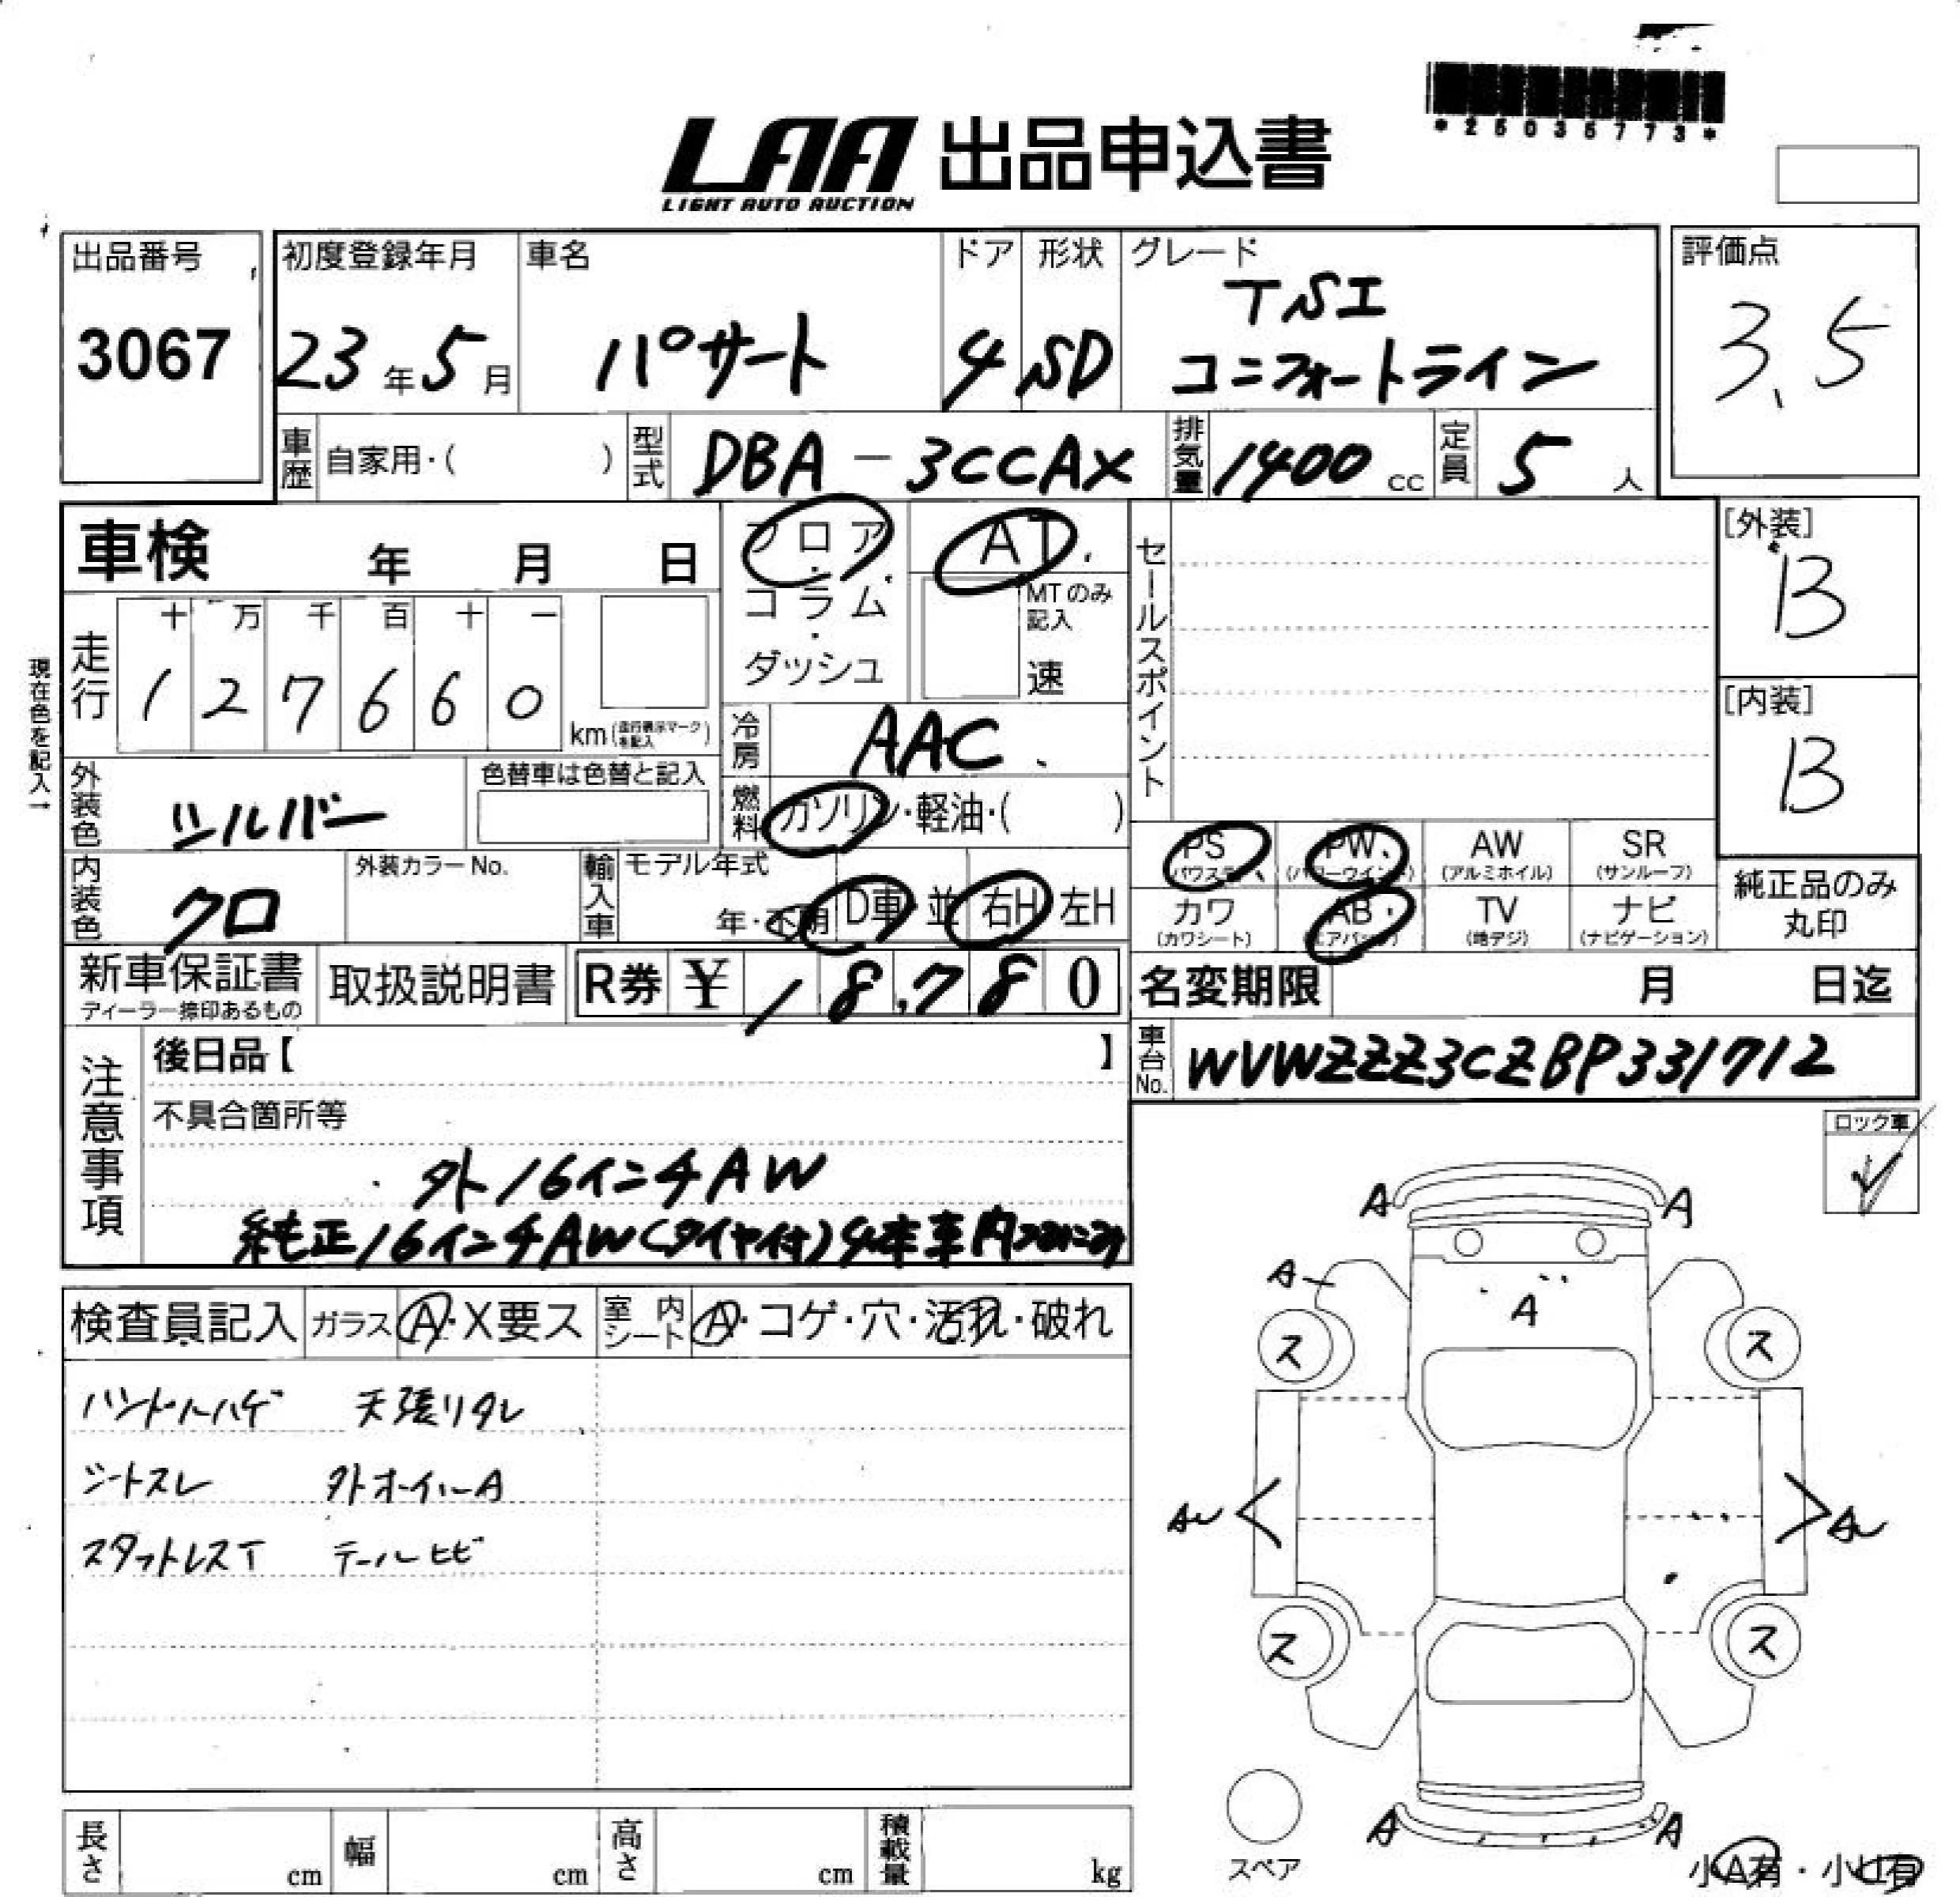 *25035773*
LAA 出品申込書
LIGHT AUTO AUCTION
出品番号 初度登録年月 車名 ドア 形状 グレード 評価点
3067 23年5月 パサート 4 SD TSI 3.5
コンフォートライン
車歴 自家用・( ) 型式 DBA-3CCAX 排気量 1400 cc 定員 5 人
車検 年 月 日 フロア・コラム・ダッシュ AT MTのみ記入 速 セールスポイント [外装] B
現在色を記入→
走行 十 万 千 百 十 一
1 2 7 6 6 0 km(走行表示マークを記入)
[内装] B
冷房 AAC
外装色 シルバー 色替車は色替と記入 燃料 ガソリン・軽油・( )
PS (パワステ) PW (パワーウインド) AW (アルミホイル) SR (サンルーフ)
カワ (カワシート) AB (エアバッグ) TV (地デジ) ナビ (ナビゲーション)
純正品のみ
丸印
内装色 クロ 外装カラーNo. 輸入車 モデル年式 年・不明 D車・並 右H 左H
新車保証書 取扱説明書 R券 ¥ 18,780 名変期限 月 日迄
ディーラー捺印あるもの
車台No. WVWZZZ3CZBP331712
注意事項 後日品【 】
不具合箇所等
外16インチAW
純正16インチAW(タイヤ付)4本車内
ロック車
検査員記入 ガラス A・X要ス 室内シート A・コゲ・穴・汚れ・破れ
ハンドルハゲ 天張リタレ
シートスレ 外ホイールA
スタットレスT テールヒビ
A A
A A
ス ス
A
ス ス
A A
スペア
小A有・小凹有
長さ cm 幅 cm 高さ cm 積載量 kg